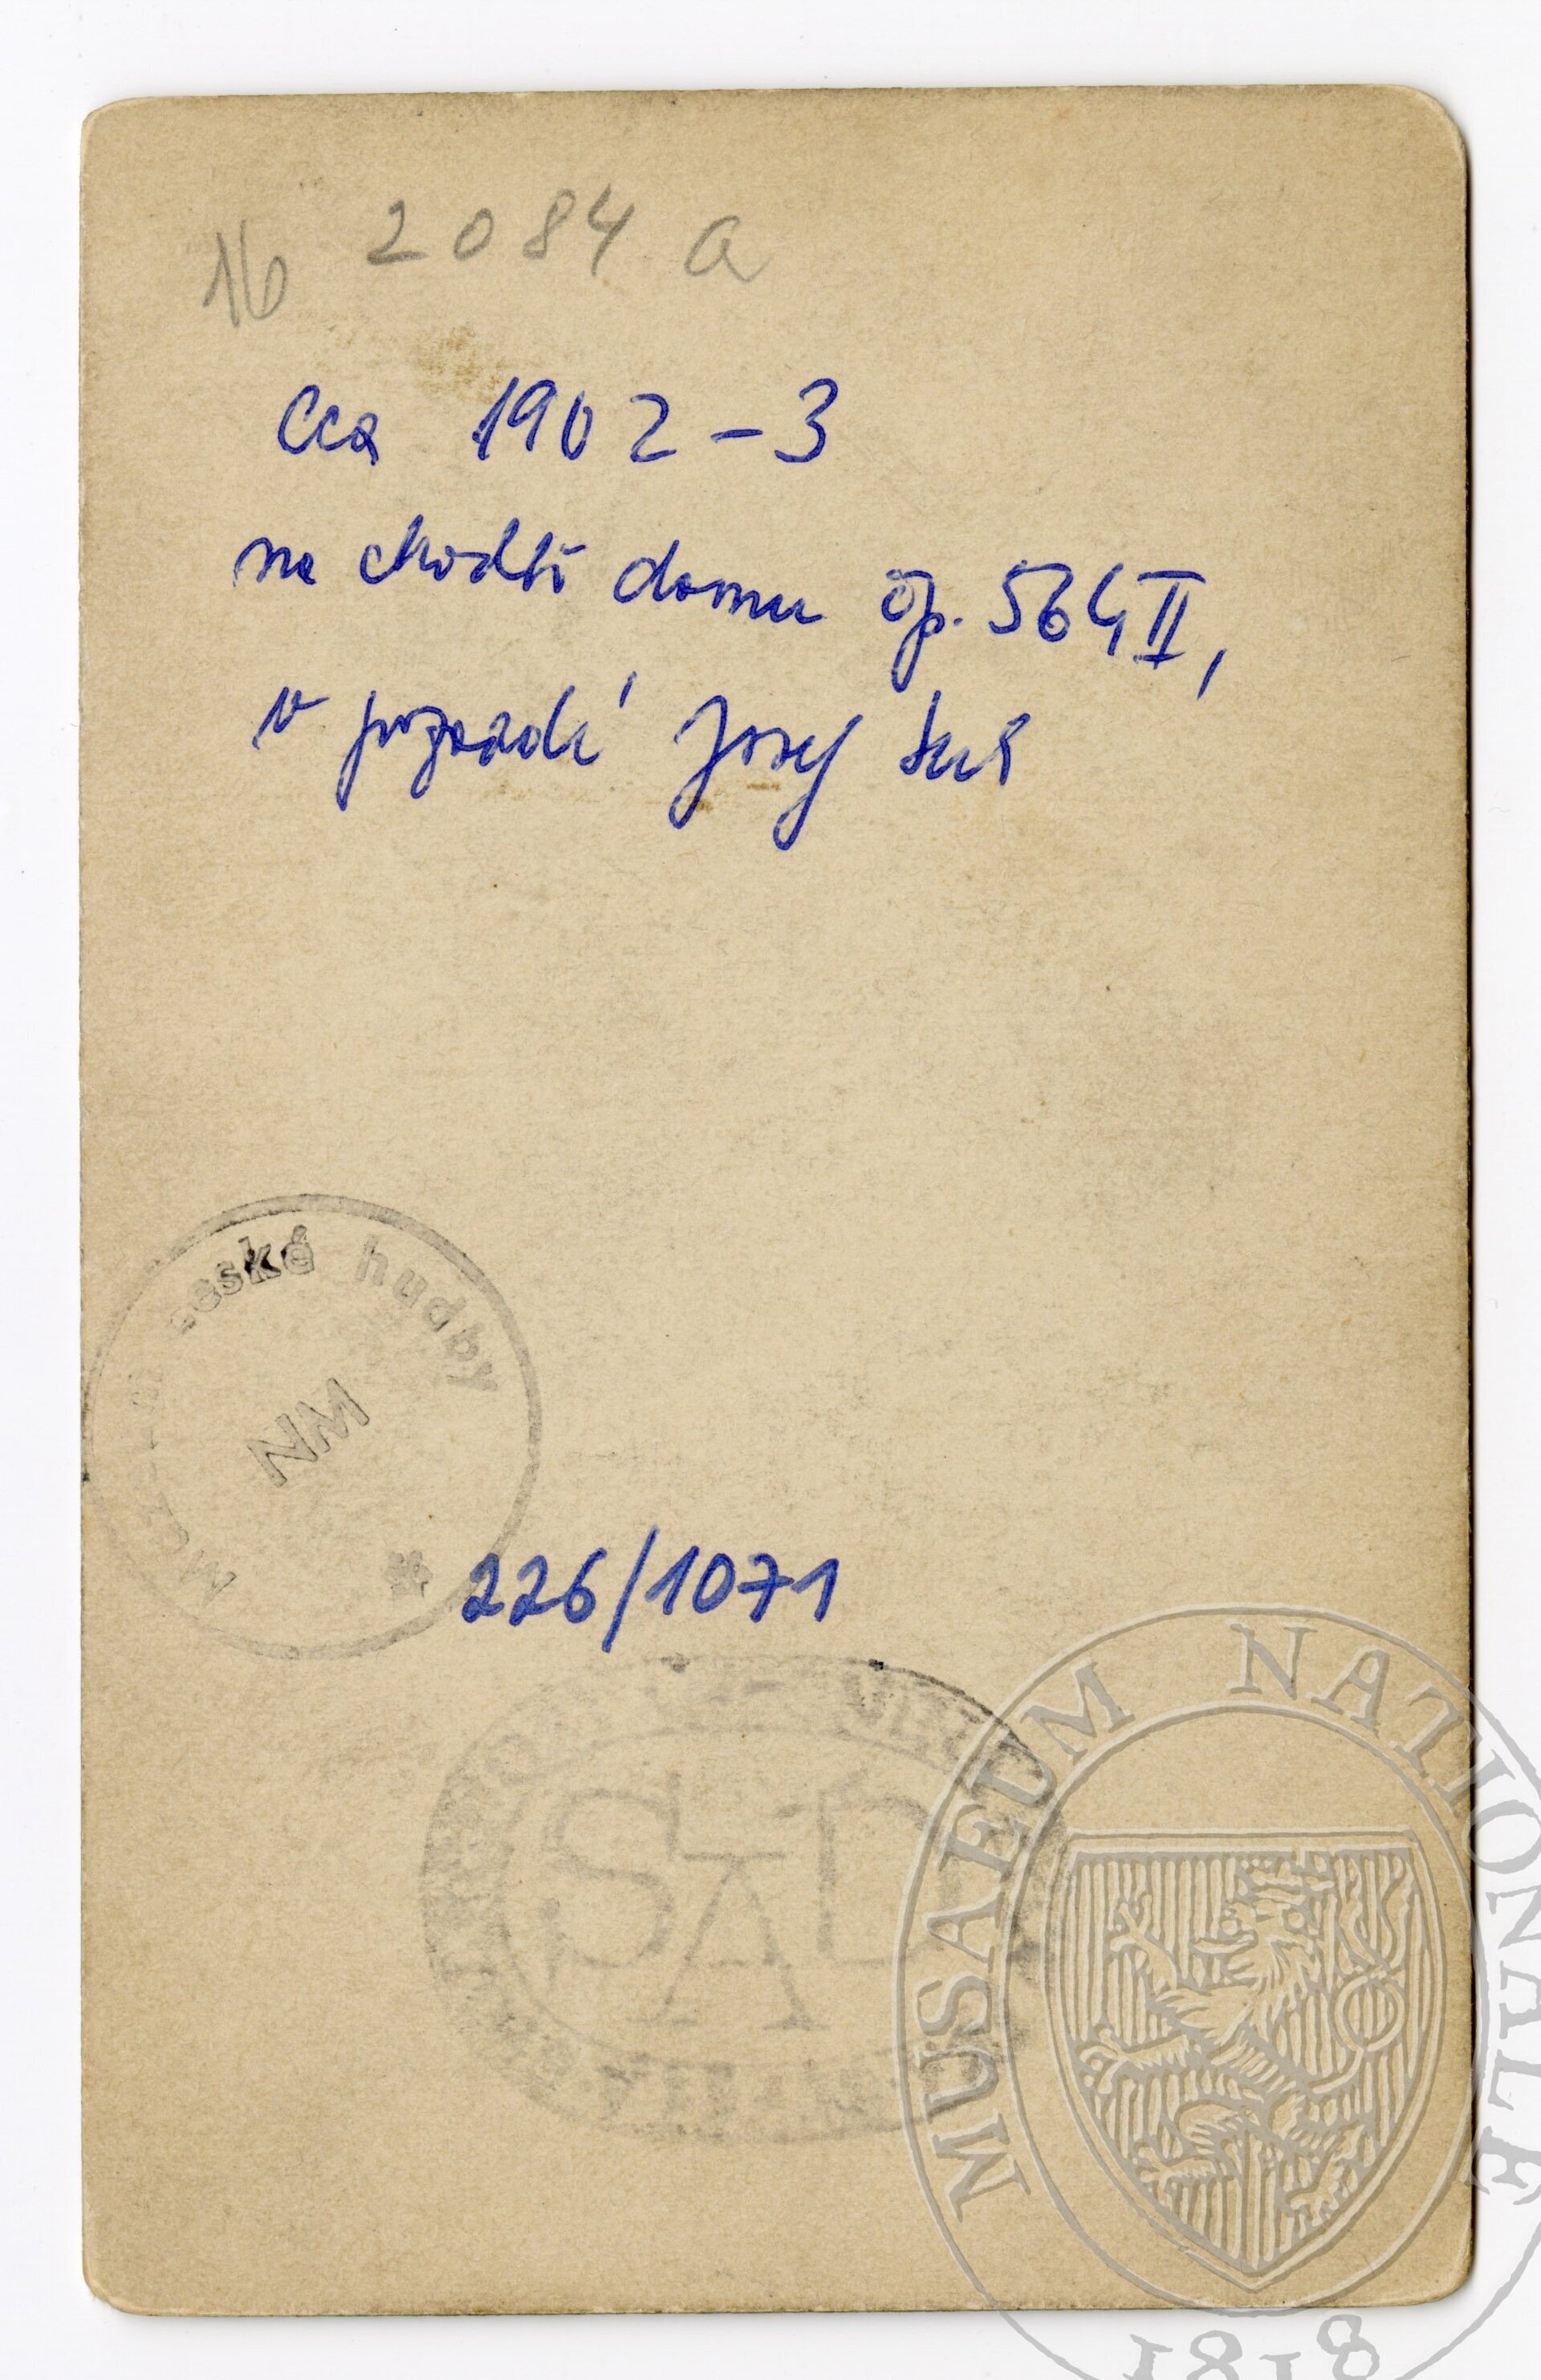 16 2084 a
cca 1902-3
na chodbě domu čp. 564 II,
v pozadí Josef Suk
české hudby
NM
226/1071
MUSAEUM NATIONALE
1818